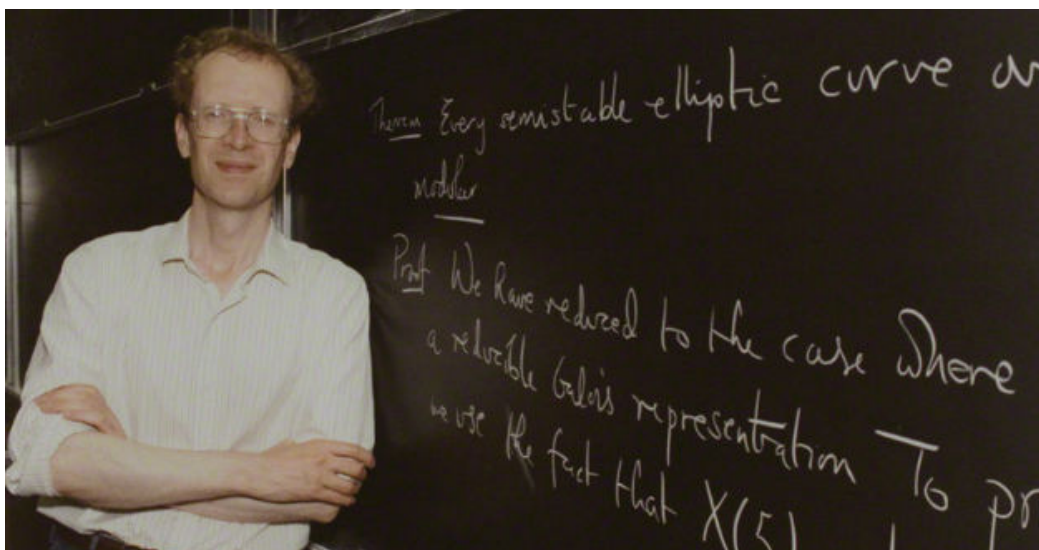 Theorem Every semistable elliptic curve
modular
Proof We have reduced to the case where
a reducible Galois representation To
we use the fact that X(5)